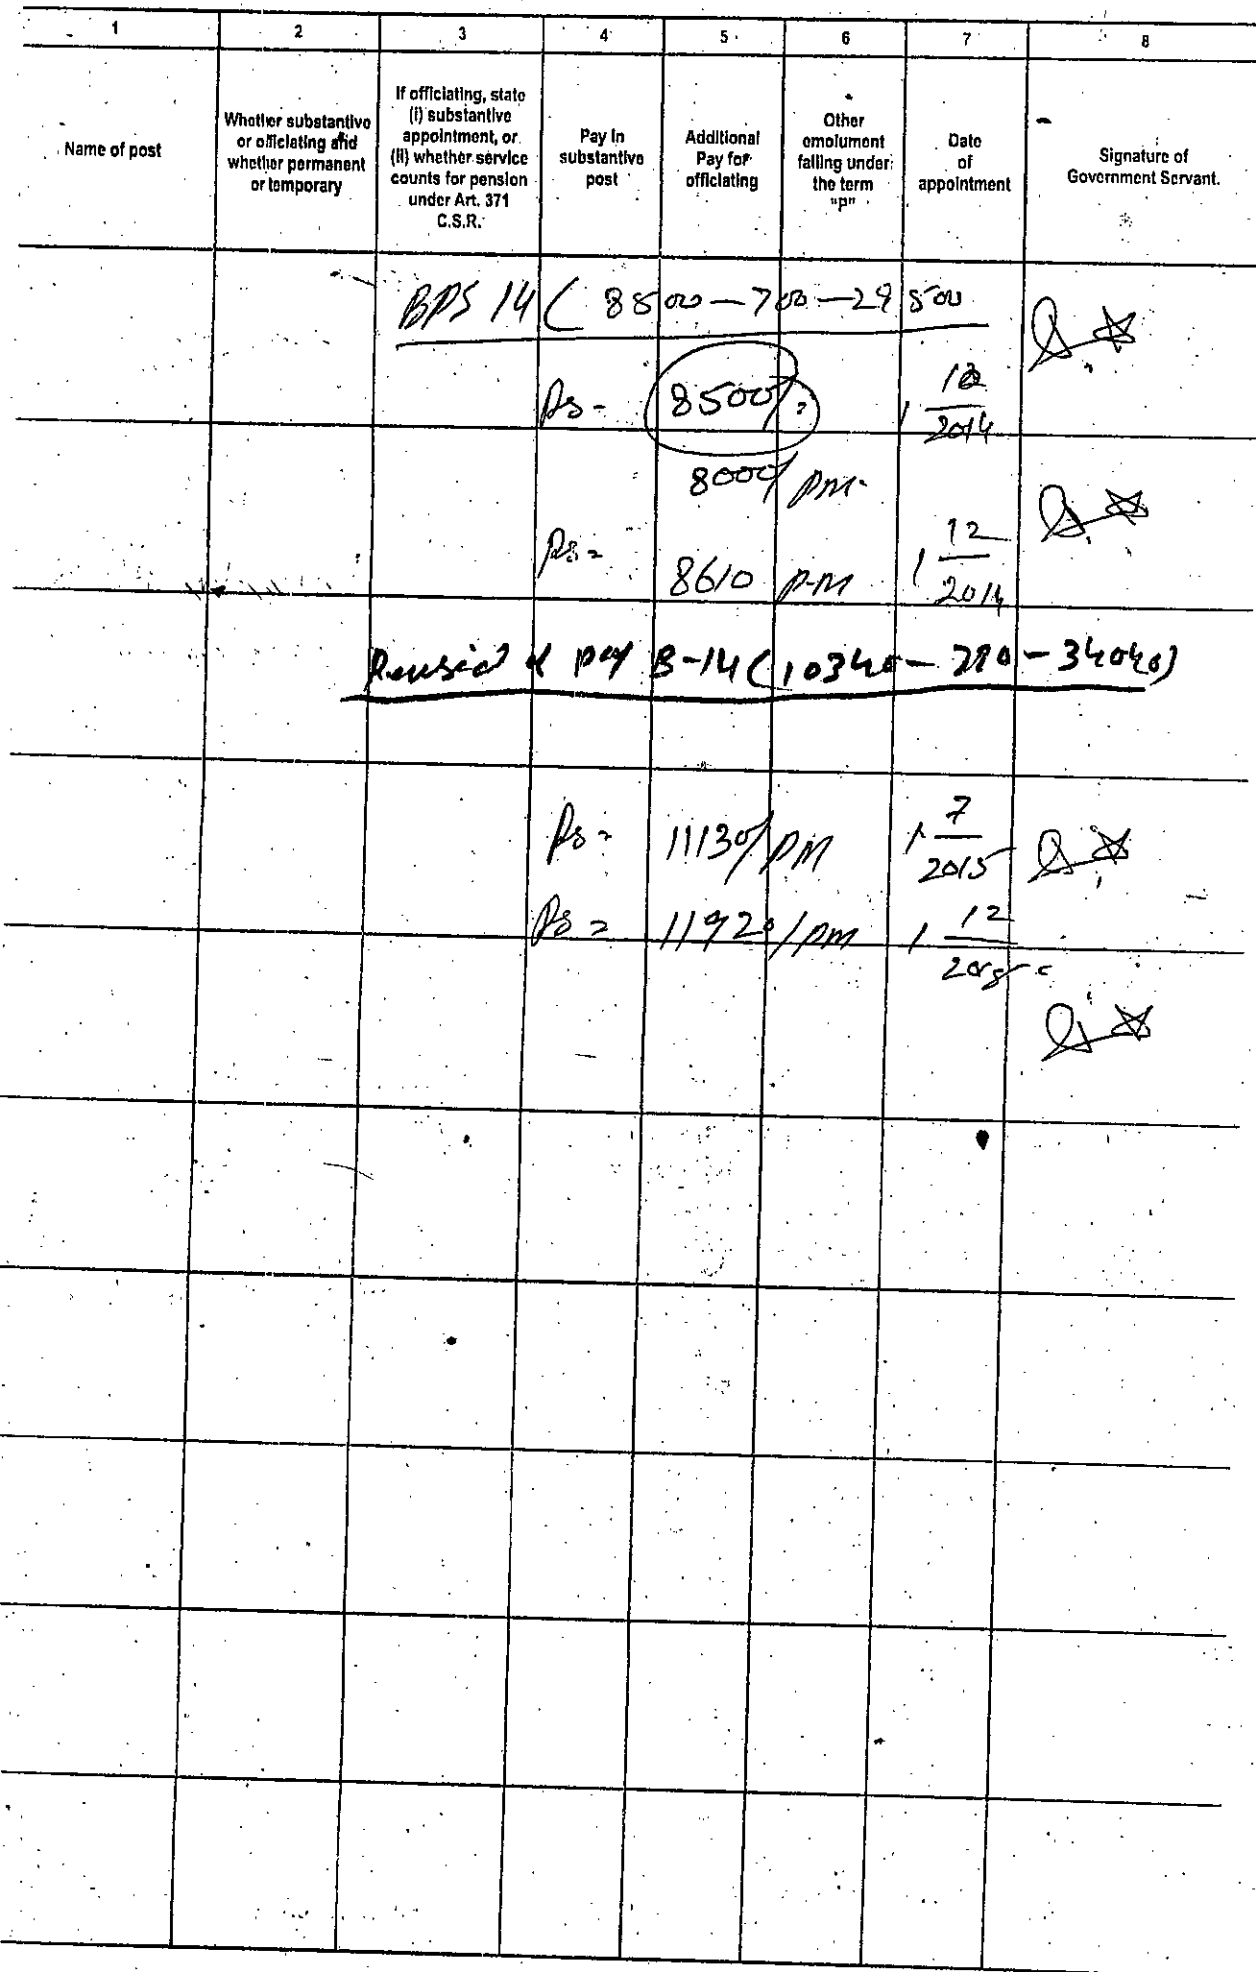 1 2 3 4 5 6 7 8
Name of post
Whether substantive
or officiating and
whether permanent
or temporary
If officiating, state
(i) substantive
appointment, or
(ii) whether service
counts for pension
under Art. 371
C.S.R.
Pay in
substantive
post
Additional
Pay for
officiating
Other
emolument
falling under
the term
"P"
Date
of
appointment
Signature of
Government Servant.
BPS 14 ( 8500-700-29500
Rs- 8500/= 1 12/2014
8000/ pm.
Rs= 8610 P.M 1 12/2014
of pay B-14 (10340-790-34040)
Rs= 11130/PM 1 7/2015
Rs= 11920/pm 1 12/2015